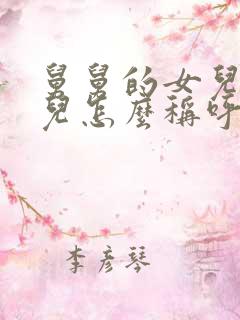 舅舅的女兒
兒怎麼稱呼
李彦琴